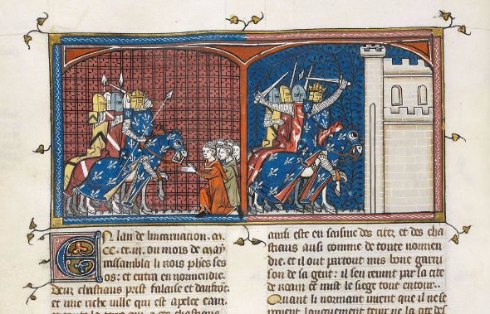 En lan de lincarnation .m.
CC. et .iii. ou mois de may
assambla li rois phelipes ses
os: et entra en normendie.
Deus chastiaus prist falaise et danfront
et une riche ville qui est apelee caen
et toute la terre qui a ces chastiaus
ainsi est en saisine des citez et des cha
stiaus ausi comme de toute normen
die. et il out partout mis bone garni
son de sa gent: il sen revint par la cite
de roam et mist le siege tout entour.
Quant li normant virent que il ne se
longuement tenir ne la cite des